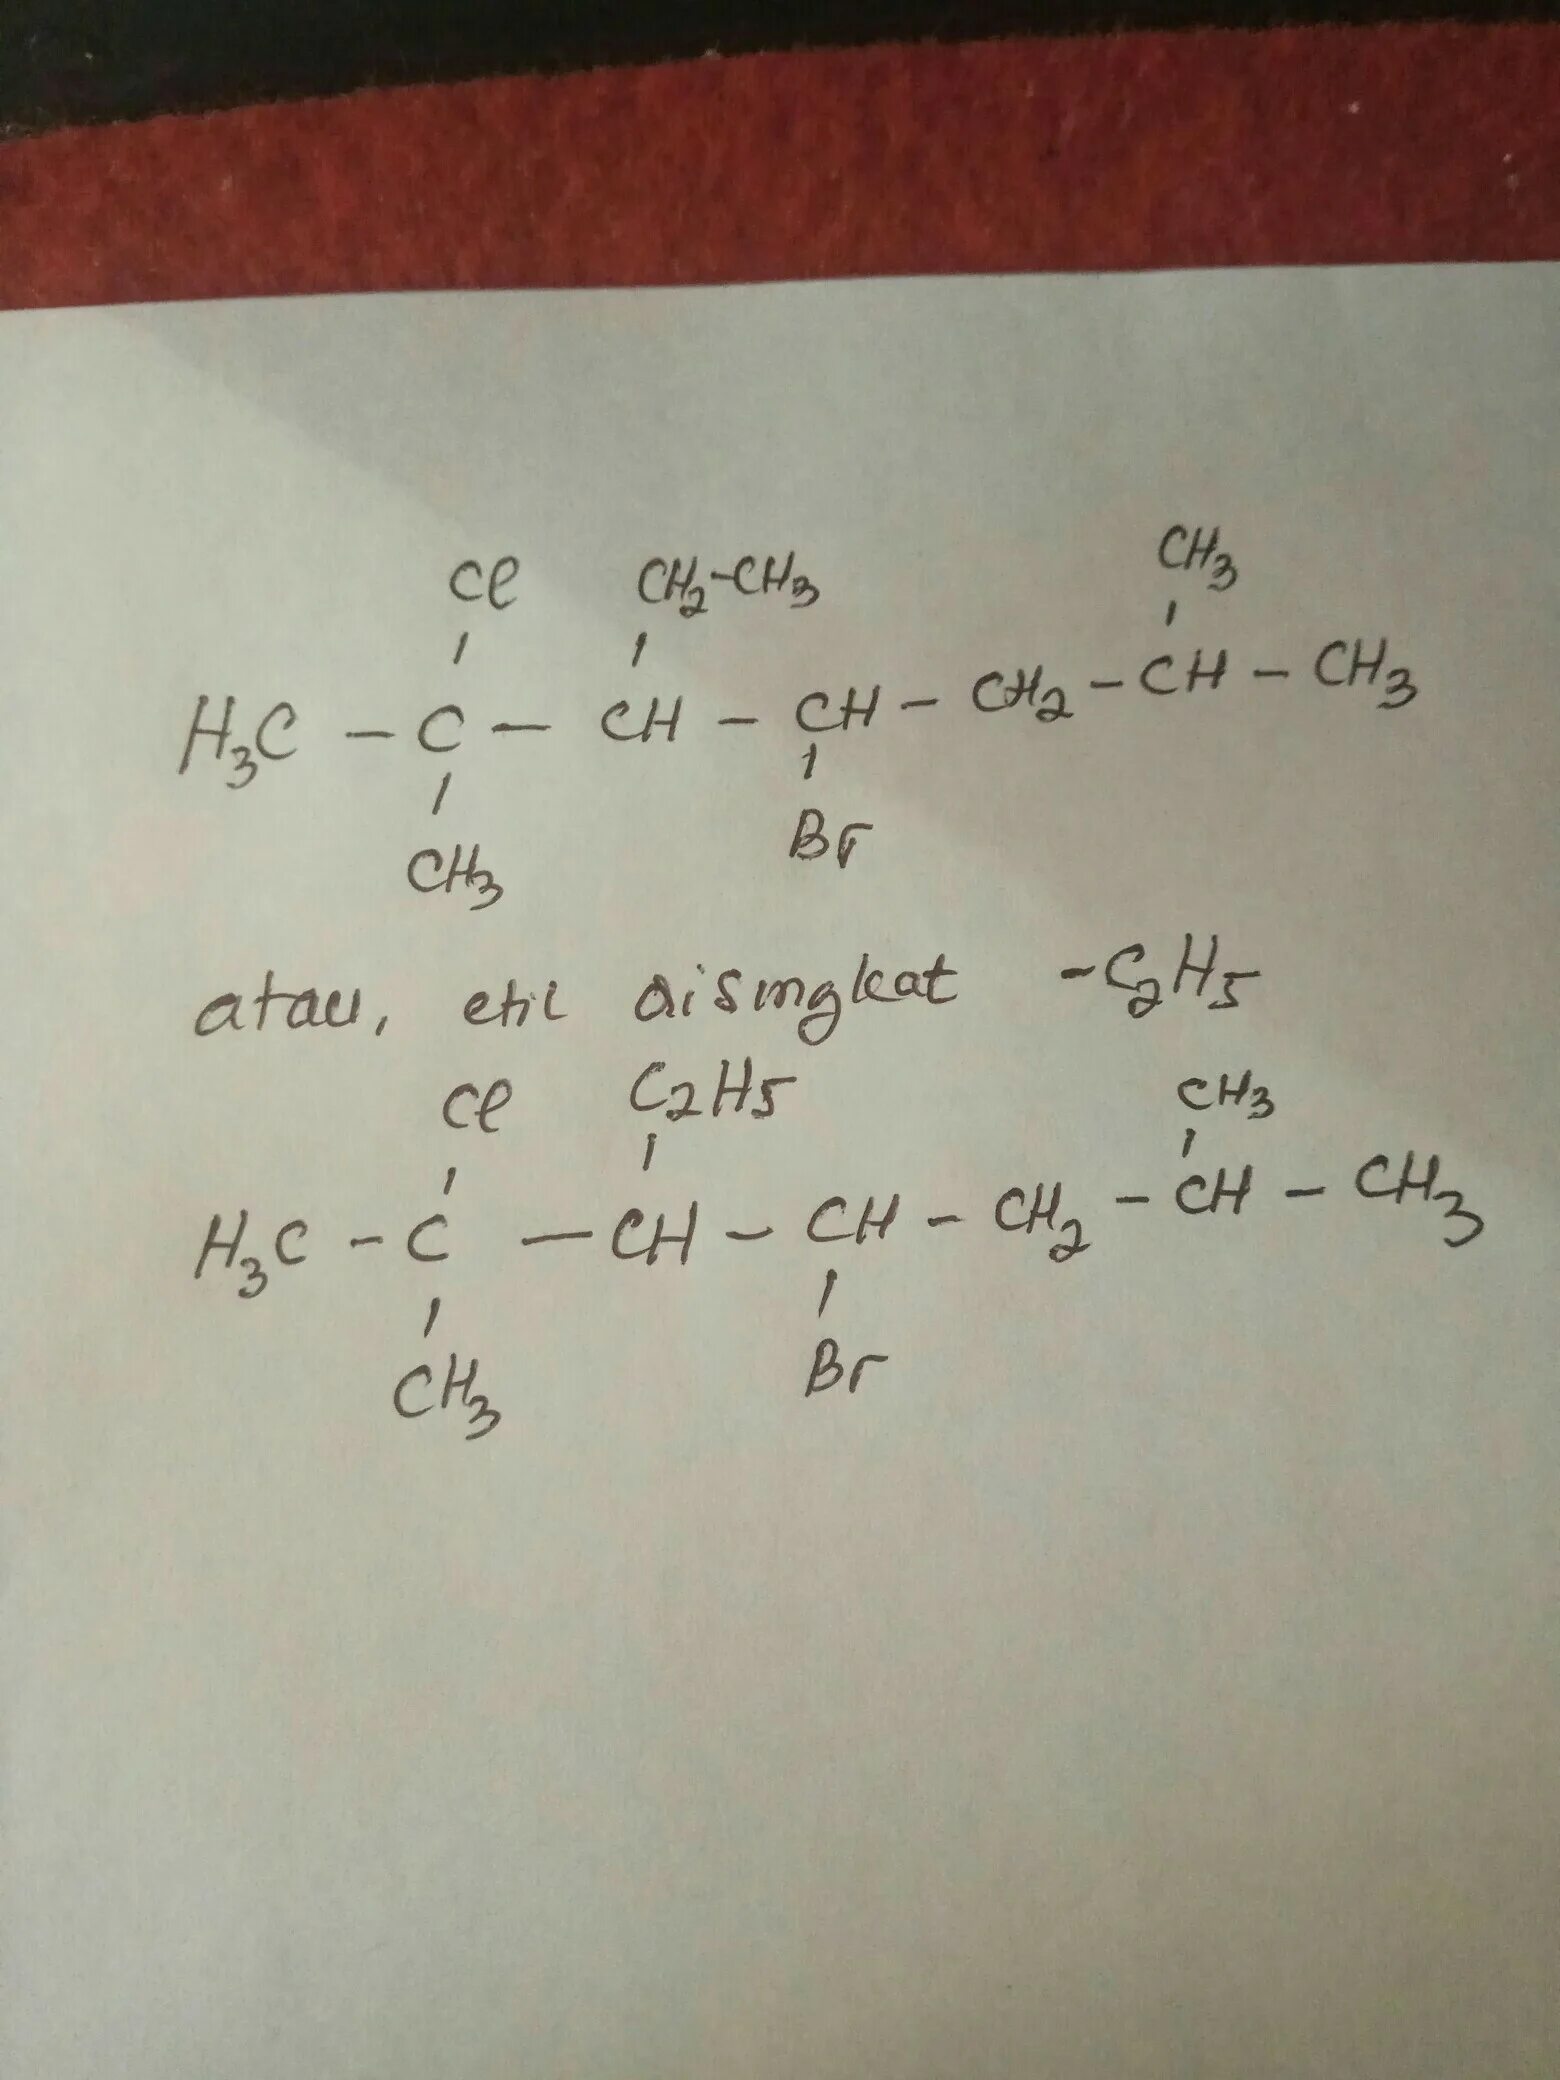 Cl CH2-CH3 CH3
H3C - C - CH - CH - CH2 - CH - CH3
CH3 Br
atau, etil disingkat -C2H5
Cl C2H5 CH3
H3C - C - CH - CH - CH2 - CH - CH3
CH3 Br